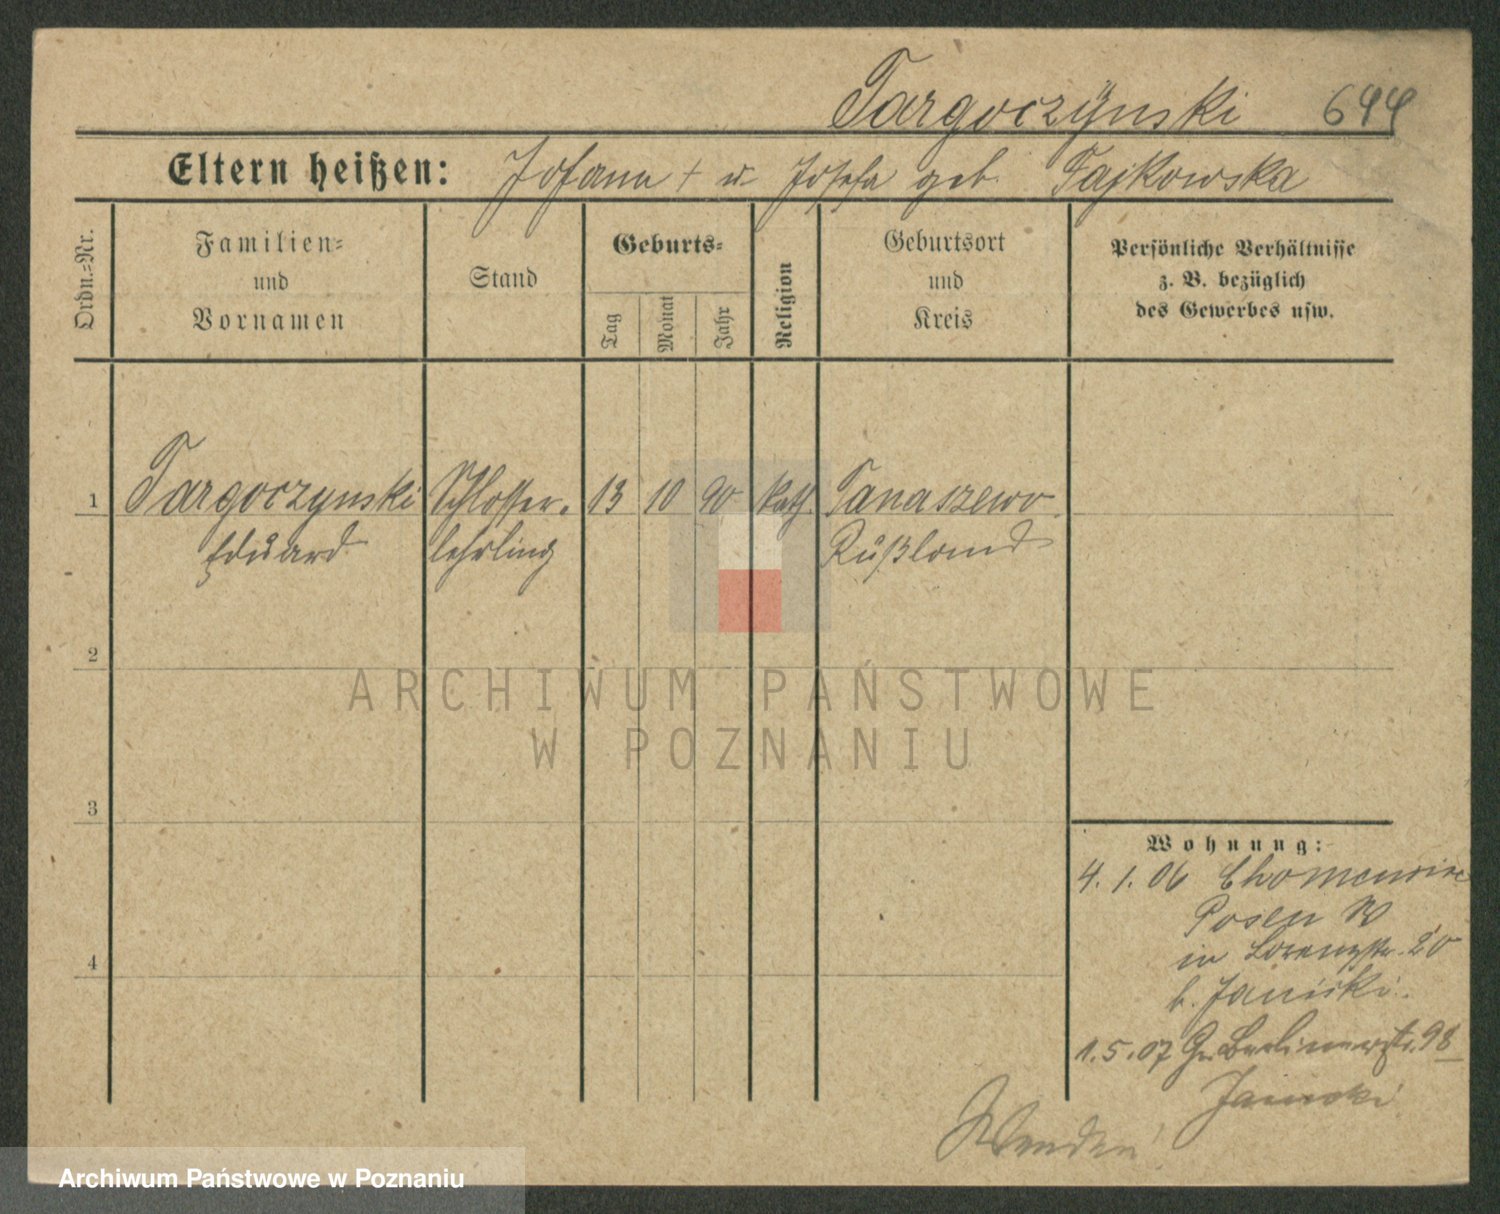 Targoczÿnski 644
Eltern heißen: Johann + u Josefa geb. Tajkowska
Ordn.=Nr.
Familien=
und
Vornamen
Stand
Geburts=
Tag
Monat
Jahr
Religion
Geburtsort
und
Kreis
Persönliche Verhältnisse
z. B. bezüglich
des Gewerbes usw.
1 Targoczynski Schlosser- 13 10 90 kath. Tanaszewo
Eduard lehrling Rußland
2
3
4
Wohnung:
4.1.06
Posen W
in Lorenzstr. 20
b. Janicki.
1.5.07 Gr. Berlinerstr. 98
Janicki
Wenden!
ARCHIWUM PAŃSTWOWE
W POZNANIU
Archiwum Państwowe w Poznaniu